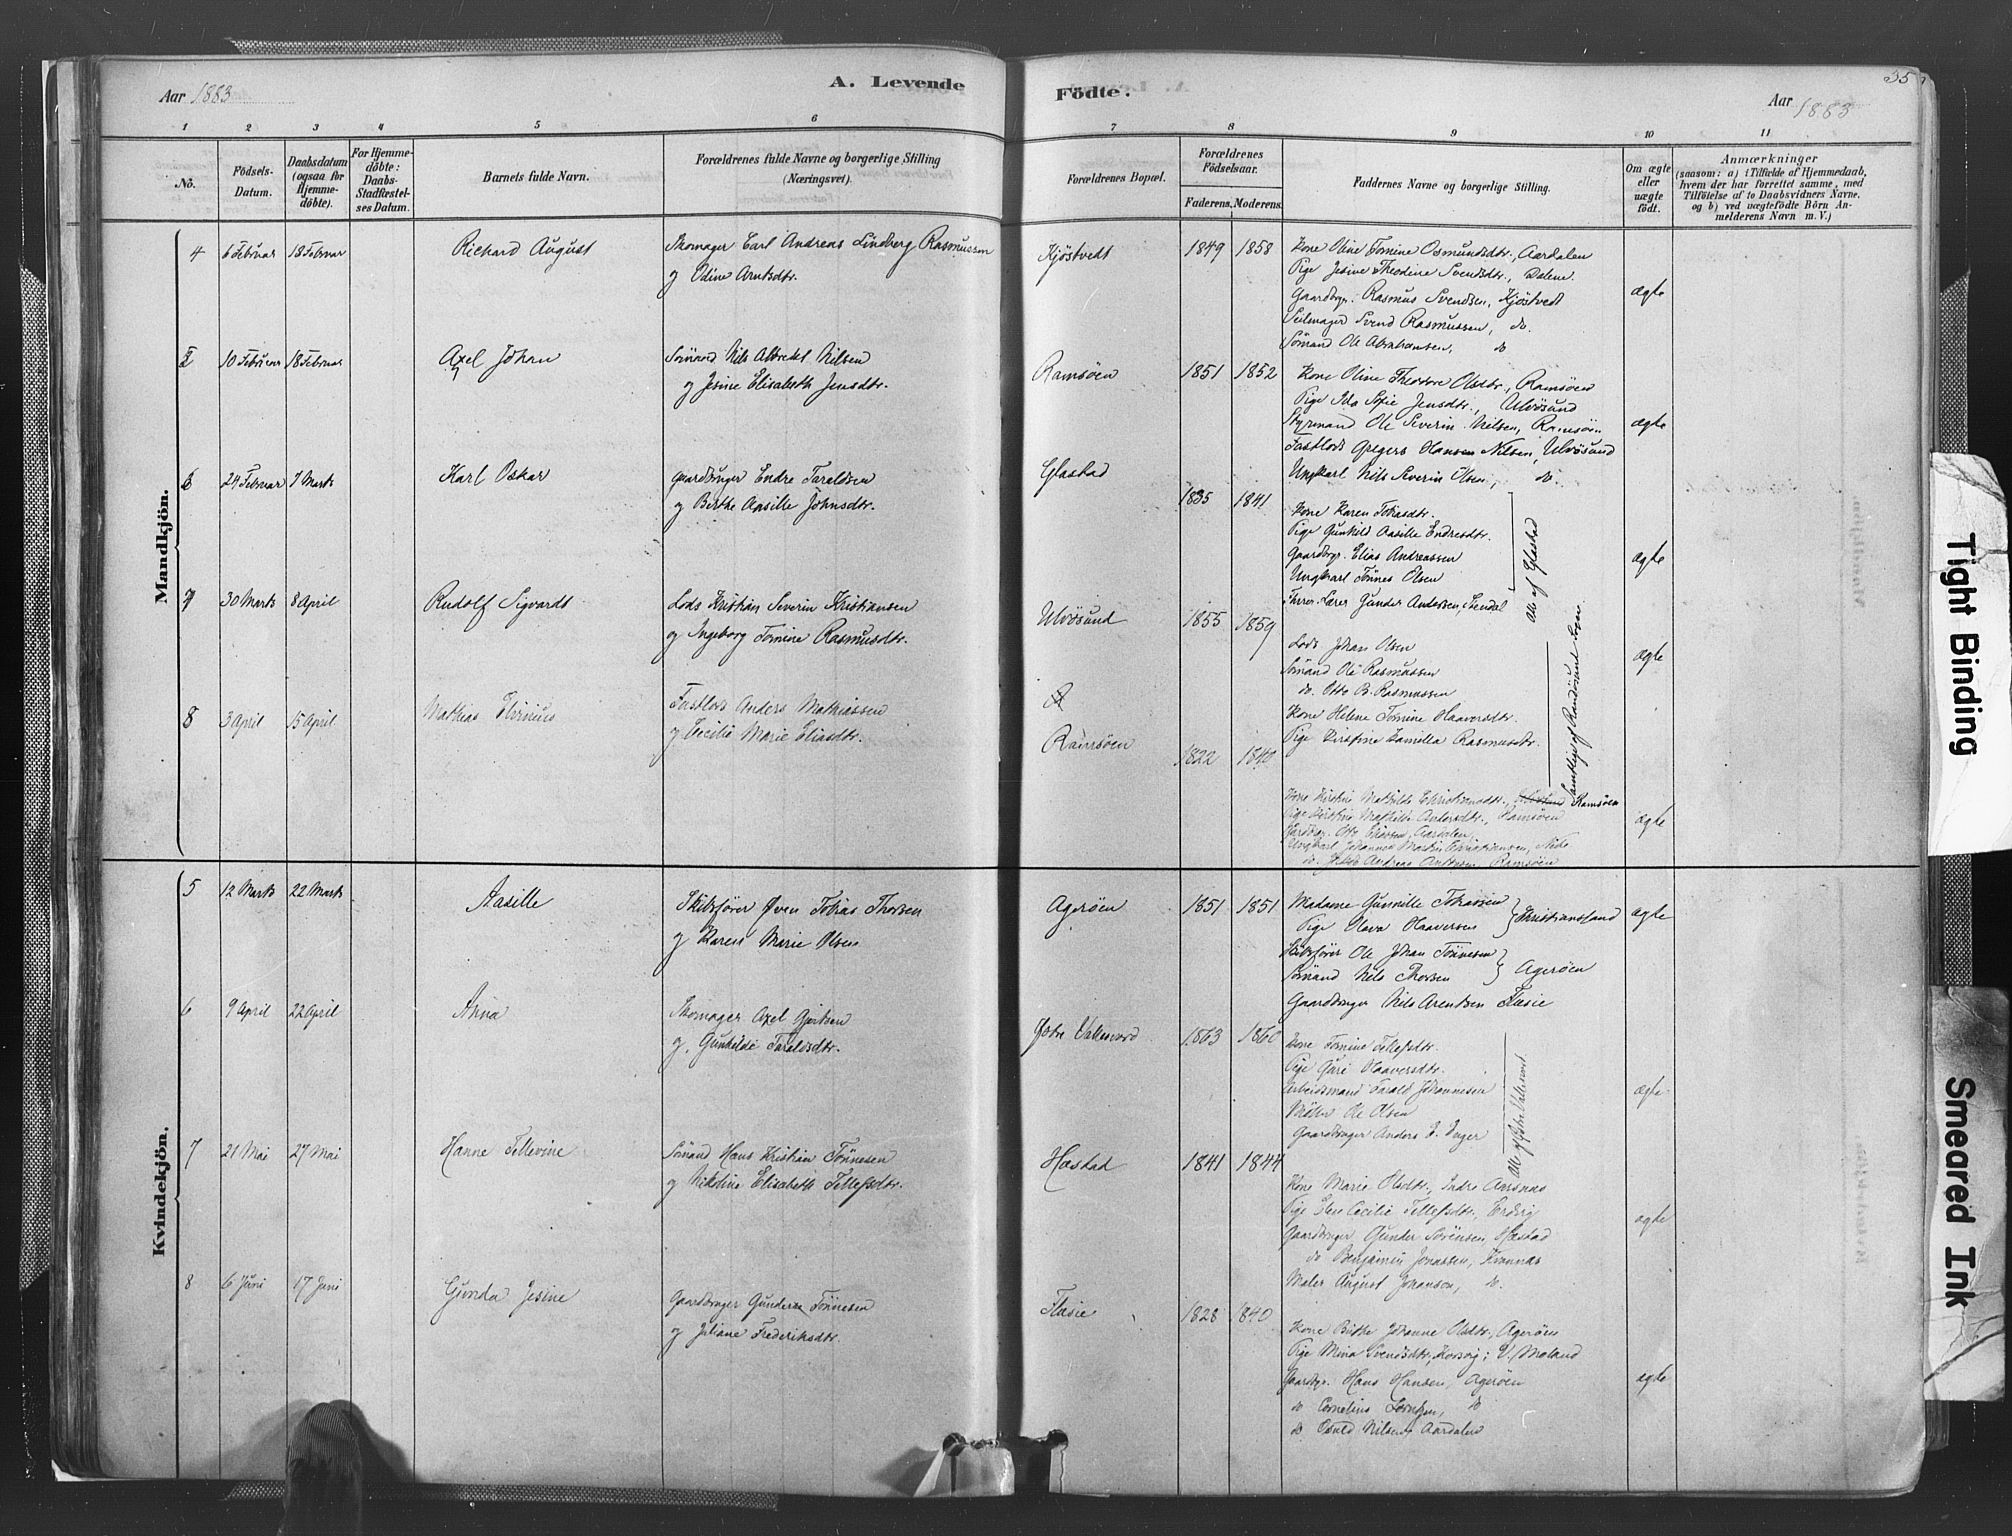 Aar 1883
A. Levende
Fødte.
35
Aar 1883
1 2 3 4 5 6 7 8 9 10 11
No.
Födsels-
Datum.
Daabsdatum
(ogsaa for
Hjemme-
döbte).
For Hjemme-
döbte:
Daabs-
Stadfæstel-
ses Datum.
Barnets fulde Navn.
Forældrenes fulde Navne og borgerlige Stilling
(Næringsvei).
Forældrenes Bopæl.
Forældrenes
Födselsaar.
Faderens. Moderens.
Faddernes Navne og borgerlige Stilling.
Om ægte
eller
uægte
födt.
Anmærkninger
(saasom: a) i Tilfælde af Hjemmedaab,
hvem der har forrettet samme, med
Tilföielse af to Daabsvidners Navne,
og b) ved uægtefödte Börn An-
melderens Navn m. V.)
Mandkjön.
4 6 Februar 18 Februar Richard August
Skomager Carl Andreas Lindberg Rasmussen
og Odine Arntsdtr.
Kjöstvedt 1849 1858
Kone Oline Tomine Osmundsdtr., Aardalen
Pige Jesine Theodine Svendsdtr., Dalene.
Gaardbrgr. Rasmus Svendsen, Kjöstvedt
Seilmager Svend Rasmussen, do.
Sömand Ole Abrahamsen, do
ægte
5 10 Februar 18 Februar Axel Johan
Sömand Nils Albredt Nilsen
og Jesine Elisabeth Jensdtr.
Ramsöen 1851 1852
Kone Oline Theodore Olsdtr., Ramsöen
Pige Ida Sofie Jensdtr., Ulvösund
Styrmand Ole Severin Nilsen, Ramsöen
Fastlods Gregers Olausen Nilsen, Ulvösund
Ungkarl Nils Severin Olsen, do.
ægte
6 24 Februar 7 Marts Karl Oskar
Gaardbruger Endre Taraldsen
og Birthe Aasille Johnsdtr.
Glastad 1835 1841
Kone Karen Tobiasdtr.
Pige Gunhild Aasille Endresdtr.
Gaardbrgr. Elias Andreassen
Ungkarl Tönnes Olsen
Lærer Gunder Andersen, Stendal
Alle af Glastad
ægte
7 30 Marts 8 April Rudolf Sigvardt
Lods Kristian Severin Kristiansen
og Ingeborg Tomine Rasmusdtr.
Ulvösund 1855 1859
Lods Johan Olsen
Sömand Ole Rasmussen
do. Otto B. Rasmussen
Kone Helene Tomine Haaversdtr.
Pige Kirstine Kamilla Rasmusdtr.
Samtlige af Randösund Sogn
ægte
8 3 April 15 April Mathias
Fastlods Anders Mathiassen
og Cecilie Marie Eliasdtr.
Ramsöen 1822 1840
Kone Kirstine Mathilde Christiansdtr., Ramsöen
Pige Kirstine Mathilde Andersdtr., Ramsöen
Gaardbrgr. Otto Eliassen, Aardalen,
Ungkarl Johannes Martin Christiansen,
do. Andreas Andersen, Ramsöen
ægte
Kvindekjön.
5 12 Marts 22 Marts Aasille
Skibsförer Sven Tobias Thorsen
og Karen Marie Olsen
Ageröen 1851 1851
Madame Gunnille Tobiassen
Pige Olava Haaversen
Christianssand
Skibsförer Ole Johan Tönnesen
Sömand Nils Thorsen
Ageröen
Gaardbruger Nils Arentsen Flasie
ægte
6 9 April 22 April Anna
Skomager Axel Gjertsen
og Gunhilde Taraldsdtr.
Østre Vallesverd 1863 1860
Kone Tomine Tellefsdtr.
Pige Guri Haaversdtr.
Arbeidsmand Tarald Johannesen
Möller Ole Olsen
Gaardbruger Anders
Alle af Østre Vallesverd
ægte
7 21 Mai 27 Mai Hanne Tellevine
Sömand Hans Kristian Tönnesen
og Nikoline Elisabeth Tellefsdtr.
Hæstad 1841 1844
Kone Marie Olsdtr., Indre Aarsnes
Pige Else Cecilie Tellefsdtr.,
Gaardbruger Gunder Sörensen, Hæstad
do Benjamin Jonassen, Kvannes
Maler August Johansen, do.
ægte
8 6 Juni 17 Juni Gunda Jesine
Gaardbruger Gunder Tönnesen
og Juliane Frederiksdtr.
Flasie 1828 1840
Kone Birthe Johanne Olsdtr., Ageröen
Pige Mina Svendsdtr, Korsvig i V. Moland
Gaardbgr. Hans Hansen, Ageröen
do Cornelius Lorentzen, do
do Osuld Nilsen, Aardalen
ægte
Tight Binding
Smeared Ink